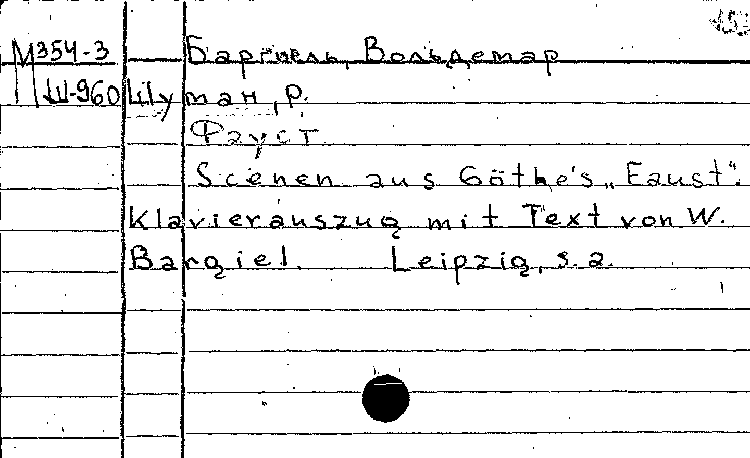 М354-3 Баргиель, Вольдемар
Ш-960 Шуман, Р.
Фауст
Scenen aus Göthe's „Faust".
Klavierauszug mit Text von W.
Bargiel. Leipzig, s. a.